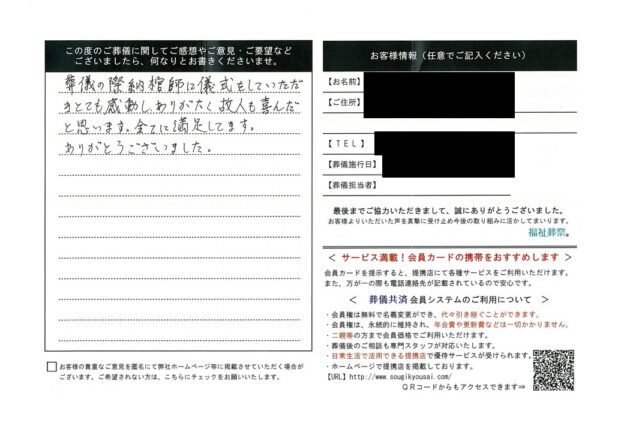 この度のご葬儀に関してご感想やご意見・ご要望など
ございましたら、何なりとお書きくださいませ。
葬儀の際納棺師に儀式をしていただ
きとても感動し、ありがたく故人も喜んだ
と思います。全てに満足してます。
ありがとうございました。
お客様の貴重なご意見を匿名にて弊社ホームページ等に掲載させていただく場合が
ございます。ご希望されない方は、こちらにチェックをお願いいたします。
お客様情報（任意でご記入ください）
【お名前】
【ご住所】
【ＴＥＬ】
【葬儀施行日】
【葬儀担当者】
最後までご協力いただきまして、誠にありがとうございました。
お客様よりいただいた声を真摯に受け止め今後の取り組みに活かしてまいります。
福祉葬祭。
＜ サービス満載！会員カードの携帯をおすすめします ＞
会員カードを提示すると、提携店にて各種サービスをご利用いただけます。
また、万が一の際も電話連絡先が記載されているので安心です。
＜ 葬儀共済 会員システムのご利用について ＞
・会員権は無料で名義変更ができ、代々引き継ぐことができます。
・会員権は、永続的に維持され、年会費や更新費などは一切かかりません。
・二親等の方まで会員価格でご利用いただけます。
・葬儀後のご相談も専門スタッフが対応いたします。
・日常生活で活用できる提携店で優待サービスが受けられます。
・ホームページで提携店を掲載しております。
【URL】http://www.sougikyousai.com/
ＱＲコードからもアクセスできます⇒